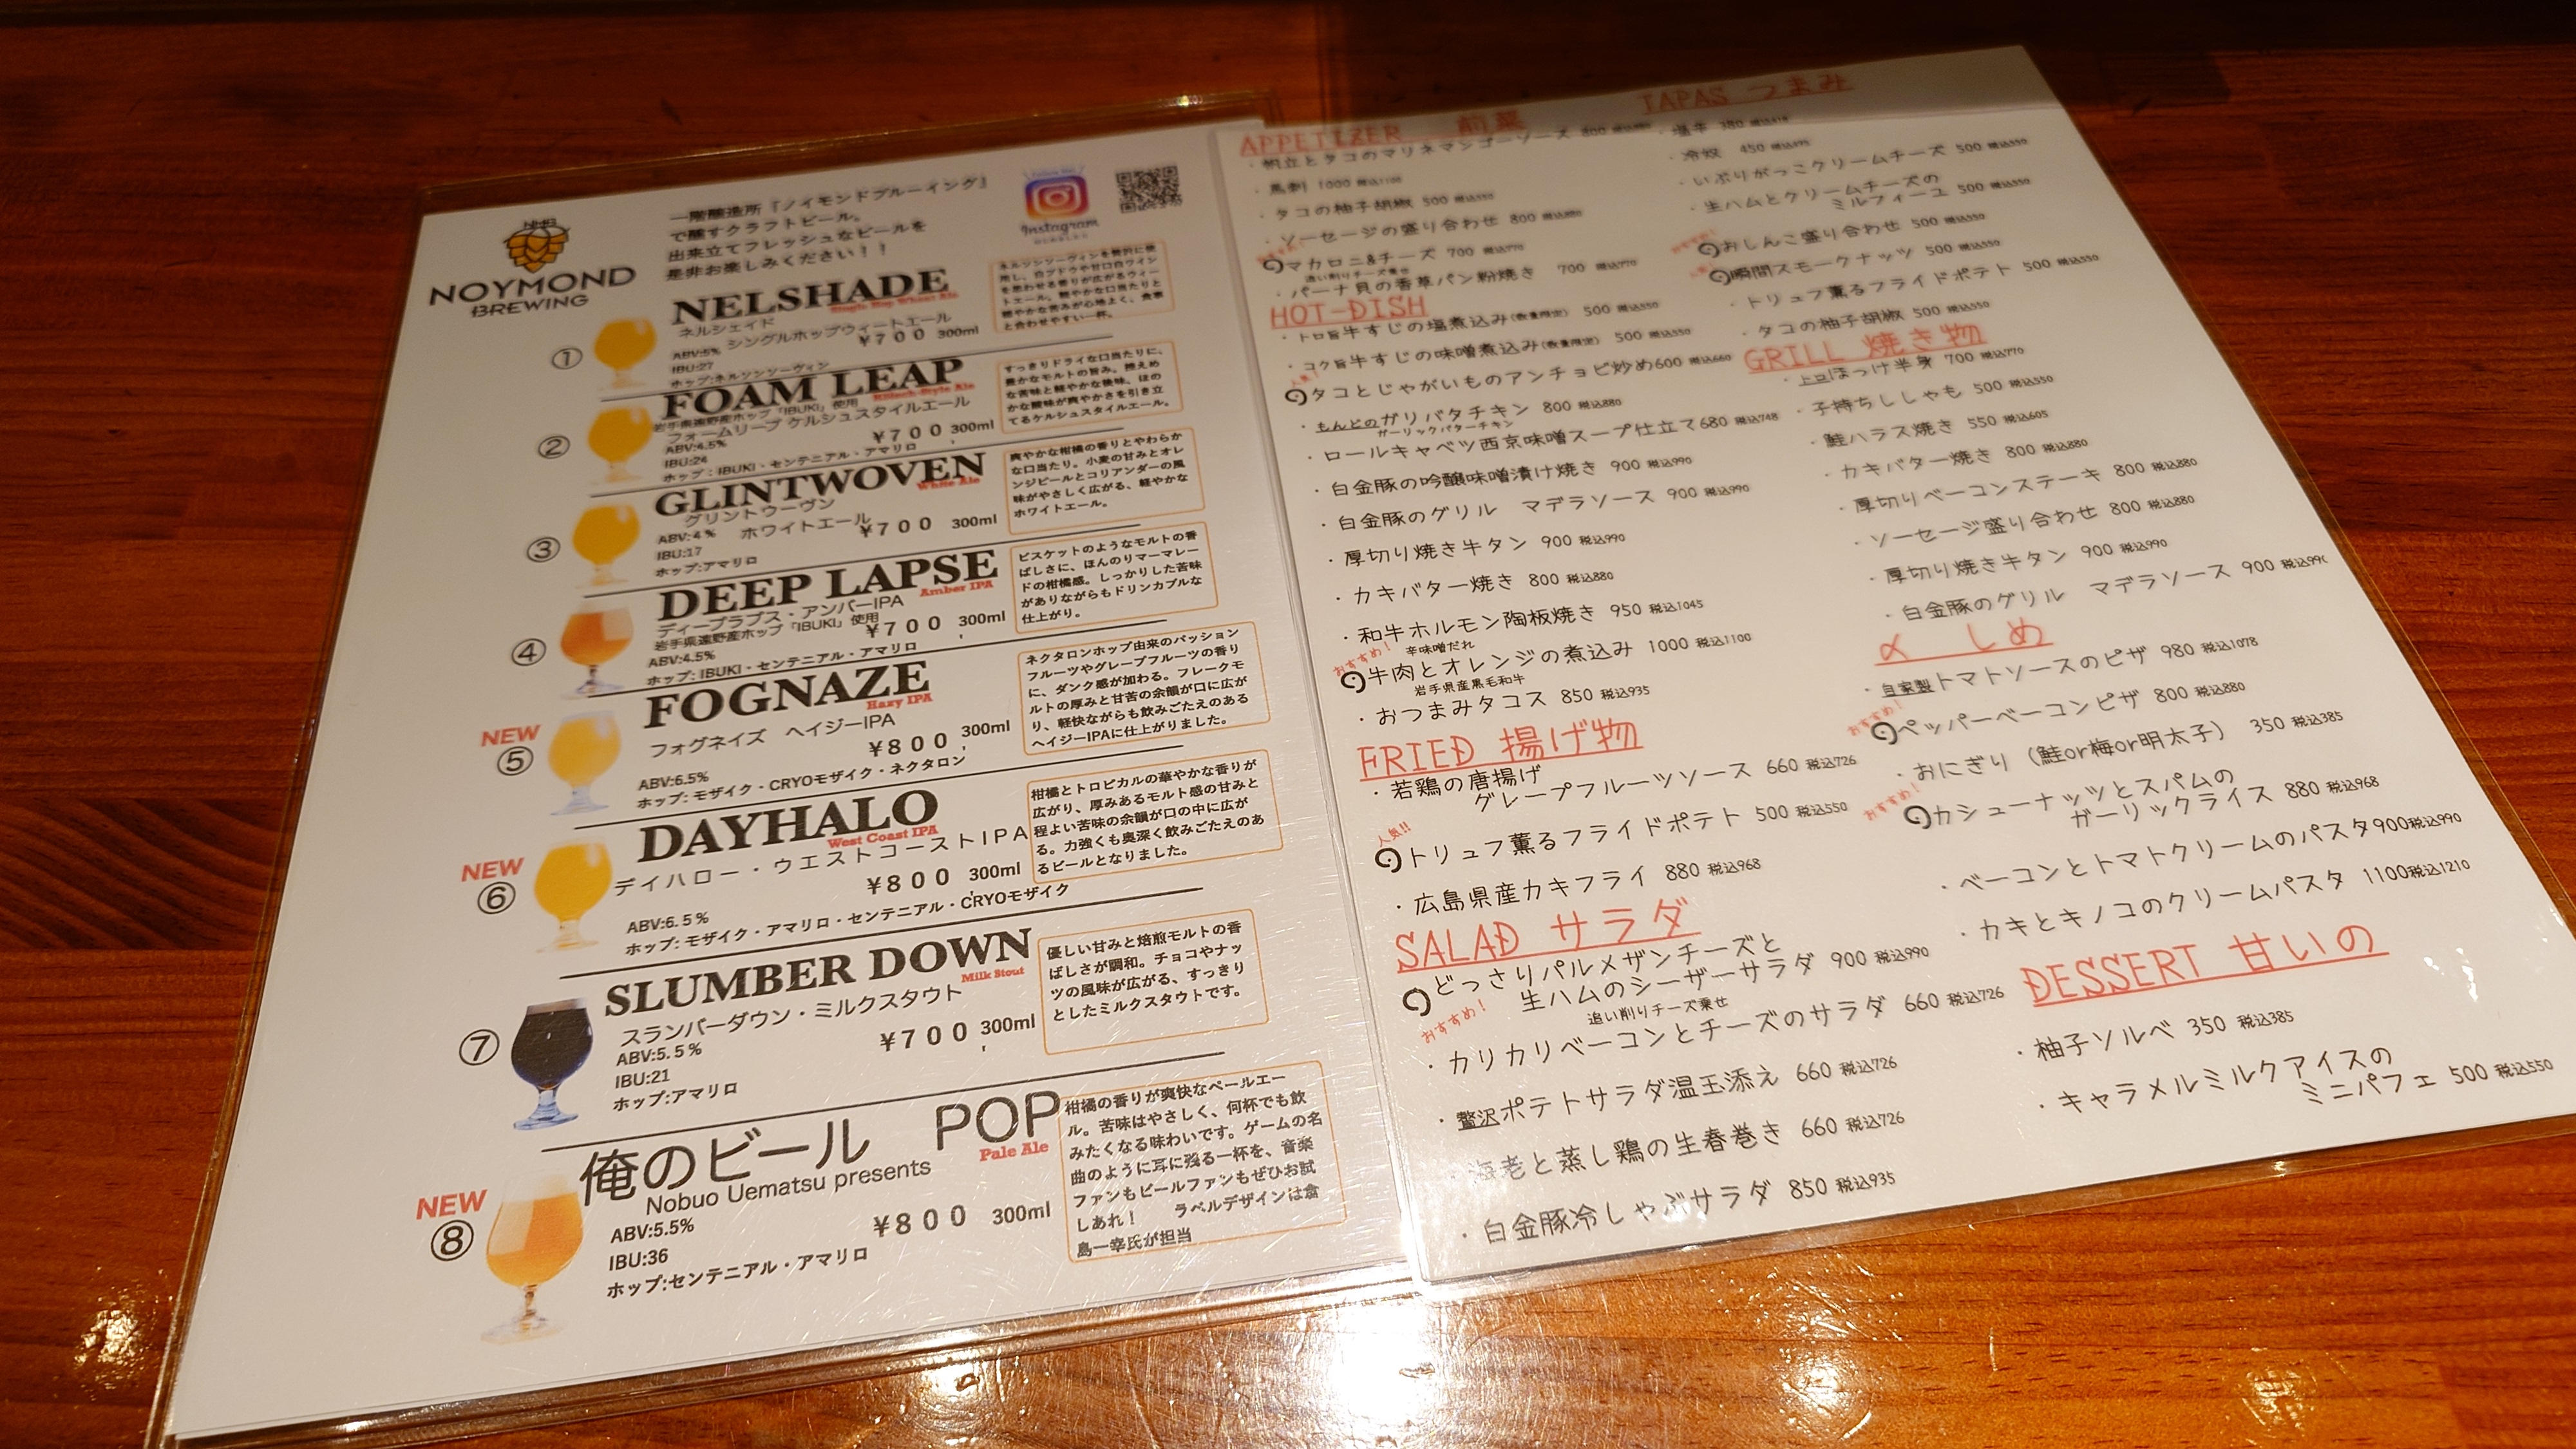 NOYMOND
BREWING
一階醸造所『ノイモンドブルーイング』
で醸すクラフトビール。
出来立てフレッシュなビールを
是非お楽しみください！！
Instagram
①
NELSHADE
Single Hop Wheat Ale
ネルシェイド
シングルホップウィートエール
ABV:5%
¥７００ 300ml
IBU:27
ホップ:ネルソンソーヴィン
ネルソンソーヴィンを贅沢に使
用し、白ブドウや甘口白ワイン
を思わせる香りが広がるウィー
トエール。軽やかな口当たりと
穏やかな苦みが心地よく、食事
と合わせやすい一杯。
②
FOAM LEAP
Kölsch-Style Ale
岩手県遠野産ホップ「IBUKI」使用
フォームリープ ケルシュスタイルエール
ABV:4.5%
¥７００ 300ml
IBU:24
ホップ：IBUKI・センテニアル・アマリロ
すっきりドライな口当たりに、
豊かなモルトの旨み。控えめ
な苦味と軽やかな後味、ほの
かな酸味が爽やかさを引き立
てるケルシュスタイルエール。
③
GLINTWOVEN
White Ale
グリントウーヴン
ホワイトエール
ABV:４％
¥７００ 300ml
IBU:17
ホップ:アマリロ
爽やかな柑橘の香りとやわらか
な口当たり。小麦の甘みとオレ
ンジピールとコリアンダーの風
味がやさしく広がる、軽やかな
ホワイトエール。
④
DEEP LAPSE
Amber IPA
ディープラプス・アンバーIPA
岩手県遠野産ホップ「IBUKI」使用
ABV:4.5%
¥７００ 300ml
ホップ: IBUKI・センテニアル・アマリロ
ビスケットのようなモルトの香
ばしさに、ほんのりマーマレー
ドの柑橘感。しっかりした苦味
がありながらもドリンカブルな
仕上がり。
NEW
⑤
FOGNAZE
Hazy IPA
フォグネイズ ヘイジーIPA
¥８００ 300ml
ABV:6.5%
ホップ: モザイク・CRYOモザイク・ネクタロン
ネクタロンホップ由来のパッション
フルーツやグレープフルーツの香り
に、ダンク感が加わる。フレークモ
ルトの厚みと甘苦の余韻が口に広が
り、軽快ながらも飲みごたえのある
ヘイジーIPAに仕上がりました。
NEW
⑥
DAYHALO
West Coast IPA
デイハロー・ウエストコーストIPA
¥８００ 300ml
ABV:6.５％
ホップ: モザイク・アマリロ・センテニアル・CRYOモザイク
柑橘とトロピカルの華やかな香りが
広がり、厚みあるモルト感の甘みと
程よい苦味の余韻が口の中に広が
る。力強くも奥深く飲みごたえのあ
るビールとなりました。
⑦
SLUMBER DOWN
Milk Stout
スランバーダウン・ミルクスタウト
ABV:5.５％
¥７００ 300ml
IBU:21
ホップ:アマリロ
優しい甘みと焙煎モルトの香
ばしさが調和。チョコやナッ
ツの風味が広がる、すっきり
としたミルクスタウトです。
NEW
⑧
俺のビール POP
Pale Ale
Nobuo Uematsu presents
ABV:5.5%
¥８００ 300ml
IBU:36
ホップ:センテニアル・アマリロ
柑橘の香りが爽快なペールエー
ル。苦味はやさしく、何杯でも飲
みたくなる味わいです。ゲームの名
曲のように耳に残る一杯を、音楽
ファンもビールファンもぜひお試
しあれ！ ラベルデザインは倉
島一幸氏が担当
APPETIZER 前菜
・帆立とタコのマリネマンゴーソース 800 税込880
・馬刺 1000 税込1100
・タコの柚子胡椒 500 税込550
・ソーセージの盛り合わせ 800 税込880
おすすめ!
マカロニ&チーズ 700 税込770
追い削りチーズ乗せ
・パーナ貝の香草パン粉焼き 700 税込770
HOT-DISH
・トロ旨牛すじの塩煮込み(数量限定) 500 税込550
・コク旨牛すじの味噌煮込み(数量限定) 500 税込550
人気!
タコとじゃがいものアンチョビ炒め600 税込660
・もんどのガリバタチキン 800 税込880
ガーリックバターチキン
・ロールキャベツ西京味噌スープ仕立て680 税込748
・白金豚の吟醸味噌漬け焼き 900 税込990
・白金豚のグリル マデラソース 900 税込990
・厚切り焼き牛タン 900 税込990
・カキバター焼き 800 税込880
・和牛ホルモン陶板焼き 950 税込1045
辛味噌だれ
おすすめ!
牛肉とオレンジの煮込み 1000 税込1100
岩手県産黒毛和牛
・おつまみタコス 850 税込935
FRIED 揚げ物
・若鶏の唐揚げ
グレープフルーツソース 660 税込726
人気!!
トリュフ薫るフライドポテト 500 税込550
・広島県産カキフライ 880 税込968
SALAD サラダ
どっさりパルメザンチーズと
生ハムのシーザーサラダ 900 税込990
追い削りチーズ乗せ
おすすめ!
・カリカリベーコンとチーズのサラダ 660 税込726
・贅沢ポテトサラダ温玉添え 660 税込726
・海老と蒸し鶏の生春巻き 660 税込726
・白金豚冷しゃぶサラダ 850 税込935
TAPAS つまみ
・塩辛 380 税込418
・冷奴 450 税込495
・いぶりがっこクリームチーズ 500 税込550
・生ハムとクリームチーズの
ミルフィーユ 500 税込550
おすすめ!
おしんこ盛り合わせ 500 税込550
人気!
瞬間スモークナッツ 500 税込550
・トリュフ薫るフライドポテト 500 税込550
・タコの柚子胡椒 500 税込550
GRILL 焼き物
・トロほっけ半身 700 税込770
・子持ちししゃも 500 税込550
・鮭ハラス焼き 550 税込605
・カキバター焼き 800 税込880
・厚切りベーコンステーキ 800 税込880
・ソーセージ盛り合わせ 800 税込880
・厚切り焼き牛タン 900 税込990
・白金豚のグリル マデラソース 900 税込990
〆 しめ
・自家製トマトソースのピザ 980 税込1078
おすすめ!
ペッパーベーコンピザ 800 税込880
・おにぎり（鮭or梅or明太子） 350 税込385
おすすめ!
カシューナッツとスパムの
ガーリックライス 880 税込968
・ベーコンとトマトクリームのパスタ900税込990
・カキとキノコのクリームパスタ 1100税込1210
DESSERT 甘いの
・柚子ソルベ 350 税込385
・キャラメルミルクアイスの
ミニパフェ 500 税込550